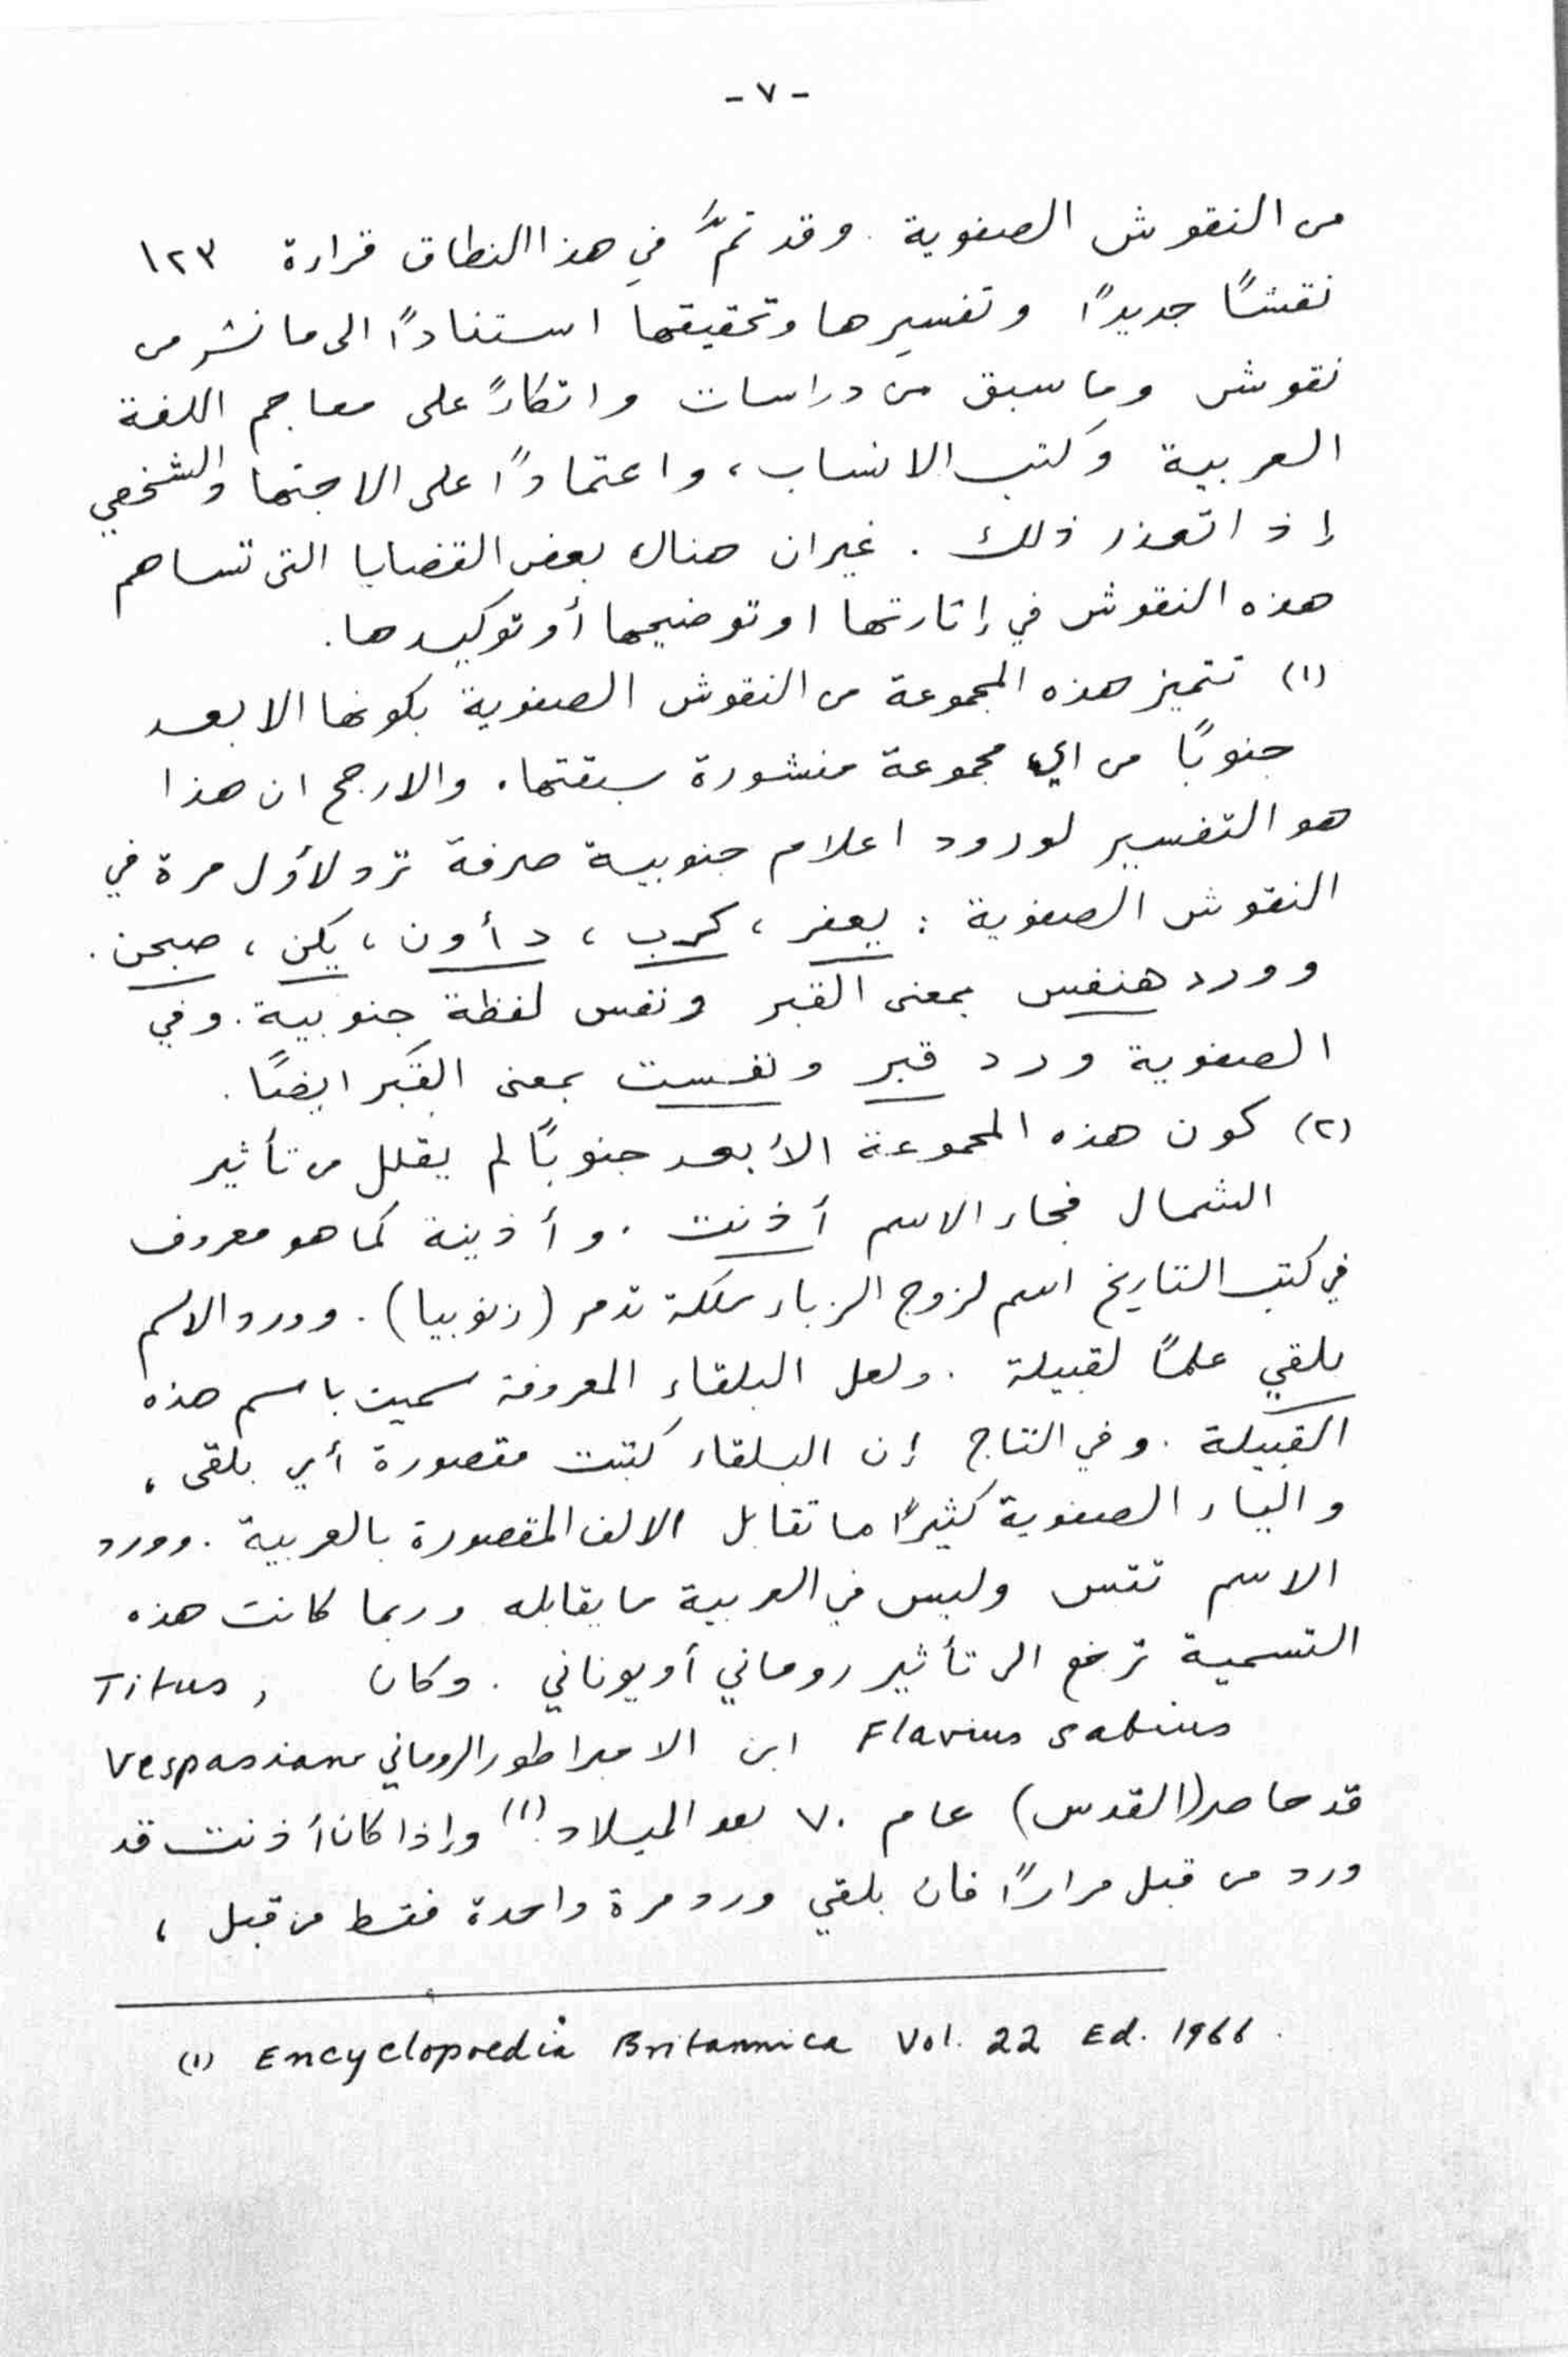 - ٧ -
من النقوش الصفوية. وقد تمَّ في هذا النطاق قراءة ١٢٣
نقشًا جديدًا وتفسيرها وتحقيقها استنادًا الى ما نشر من
نقوش وما سبق من دراسات واتكاءً على معاجم اللغة
العربية وكتب الانساب، واعتمادًا على الاجتهاد الشخصي
إذا تعذر ذلك. غير ان هناك بعض القضايا التي تساهم
هذه النقوش في إثارتها او توضيحها أو توكيدها.
(١) تتميز هذه المجموعة من النقوش الصفوية بكونها الابعد
جنوبًا من اي مجموعة منشورة سبقتها. والارجح ان هذا
هو التفسير لورود اعلام جنوبية صرفة ترد لأول مرة في
النقوش الصفوية: يعفر، كرب، دأون، يكن، صبحن.
وورد هنفس بمعنى القبر ونفس لفظة جنوبية. وفي
الصفوية ورد قبر ونفست بمعنى القبر ايضًا.
(٢) كون هذه المجموعة الأبعد جنوبًا لم يقلل من تأثير
الشمال فجاء الاسم أذنت. وأذينة كما هو معروف
في كتب التاريخ اسم لزوج الزباء ملكة تدمر (زنوبيا). وورد الاسم
بلقي علمًا لقبيلة. ولعل البلقاء المعروفة سميت باسم هذه
القبيلة. وفي التاج إن البلقاء كتبت مقصورة أي بلقى،
والياء الصفوية كثيرًا ما تقابل الالف المقصورة بالعربية. وورد
الاسم تتس وليس في العربية ما يقابله وربما كانت هذه
التسمية ترجع الى تأثير روماني أو يوناني. وكان Titus,
Flavius Sabius ابن الامبراطور الروماني Vespasians
قد حاصر (القدس) عام ٧٠ بعد الميلاد.(١) وإذا كان أذنت قد
ورد من قبل مرارًا فان بلقي ورد مرة واحدة فقط من قبل،
(١) Encyclopaedia Britannica Vol. 22 Ed. 1966.